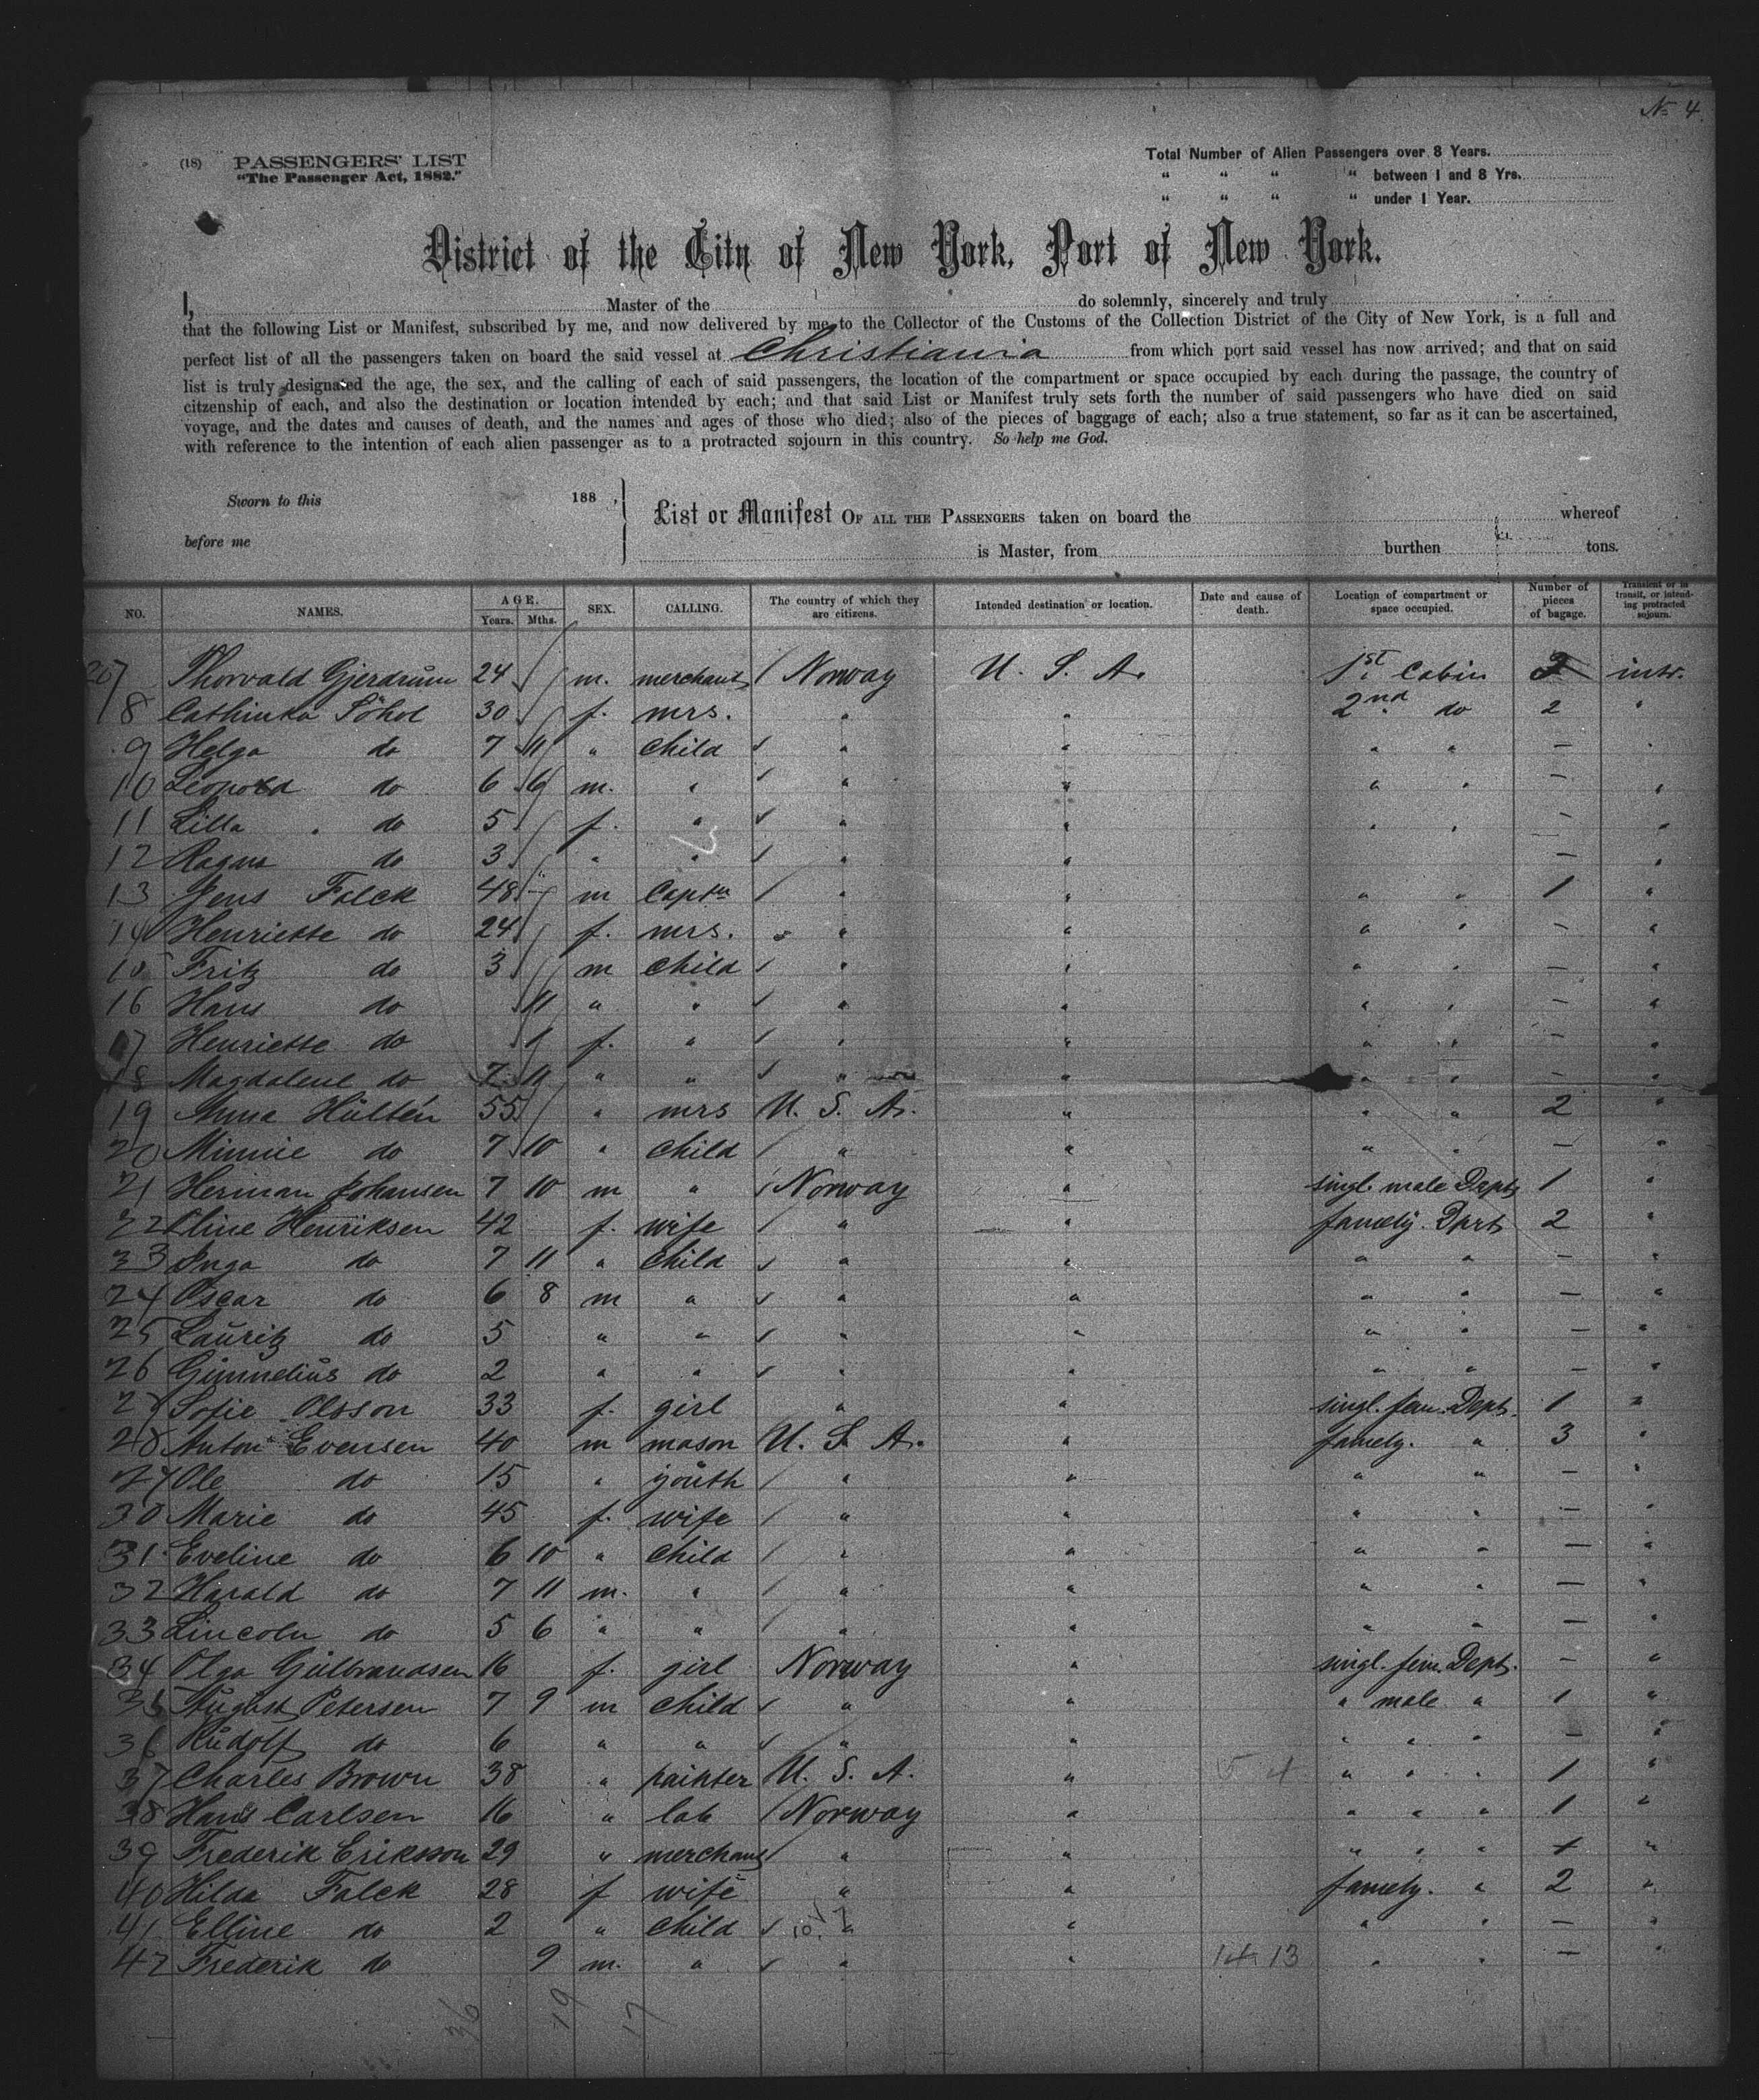 No 4.
(18) PASSENGERS' LIST
"The Passenger Act, 1882."
Total Number of Alien Passengers over 8 Years.
" " " " between 1 and 8 Yrs.
" " " " under 1 Year.
District of the City of New York, Port of New York.
I, Master of the do solemnly, sincerely and truly
that the following List or Manifest, subscribed by me, and now delivered by me to the Collector of the Customs of the Collection District of the City of New York, is a full and
perfect list of all the passengers taken on board the said vessel at Christiania from which port said vessel has now arrived; and that on said
list is truly designated the age, the sex, and the calling of each of said passengers, the location of the compartment or space occupied by each during the passage, the country of
citzenship of each, and also the destination or location intended by each; and that said List or Manifest truly sets forth the number of said passengers who have died on said
voyage, and the dates and causes of death, and the names and ages of those who died; also of the pieces of baggage of each; also a true statement, so far as it can be ascertained,
with reference to the intention of each alien passenger as to a protracted sojourn in this country. So help me God.
Sworn to this 188 ,
before me
List or Manifest OF ALL THE PASSENGERS taken on board the whereof
is Master, from burthen tons.
NO. NAMES. AGE. Years. Mths. SEX. CALLING. The country of which they are citizens. Intended destination or location. Date and cause of death. Location of compartment or space occupied. Number of pieces of bagage. Transient or in transit, or intending protracted sojourn.
207 Thorvald Gjerdrum 24 m. merchant Norway U. S. A. 1st Cabin 2 intr.
8 Cathinka Söhol 30 f. mrs. " " 2nd do 2 "
9 Helga do 7 11 " child " " " " — "
10 Leopold do 6 6 m. " " " " " — "
11 Lilla do 5 f. " " " " " — "
12 Ragna do 3 " " " " — "
13 Jens Falck 48 m Captn " " " " 1 "
14 Henriette do 24 f. mrs. " " " " — "
15 Fritz do 3 m child " " " " — "
16 Hans do 11 " " " " " " — "
17 Henriette do 9 f. " " " " " — "
18 Magdalene do 7 11 " " " " " " — "
19 Anna Hültén 55 " mrs U. S. A. " " " 2 "
20 Minnie do 7 10 " child " " " " — "
21 Herman Johansen 7 10 m " Norway " singl. male Dept. 1 "
22 Oline Henriksen 42 f. wife " " famely. Dprt 2 "
23 Inga do 7 11 " child " " " " — "
24 Oscar do 6 8 m " " " " " — "
25 Lauritz do 5 " " " " " " — "
26 Gunnelius do 2 " " " " " " — "
27 Sofie Olsson 33 f. girl " " singl. fem. Dept. 1 "
28 Anton Evensen 40 m mason U. S. A. " famely. " 3 "
29 Ole do 15 " youth " " " " — "
30 Marie do 45 f. wife " " " " — "
31 Eveline do 6 10 " child " " " " — "
32 Harald do 7 11 m. " " " " " — "
33 Lincoln do 5 6 " " " " " " — "
34 Olga Gulbrandsen 16 f. girl Norway " singl. fem. Dept. — "
35 August Petersen 7 9 m child " " " male " 1 "
36 Rudolf do 6 " " " " " " " — "
37 Charles Brown 38 " painter U. S. A. " " " " 1 "
38 Hans Carlsen 16 " lab Norway " " " " 1 "
39 Frederik Eriksson 29 " merchant " " " " " 1 "
40 Hilda Falck 28 f wife " " famely. " 2 "
41 Elline do 2 " child " " " " — "
42 Frederik do 9 m. " " " 14 13 " " — "
36 19 17